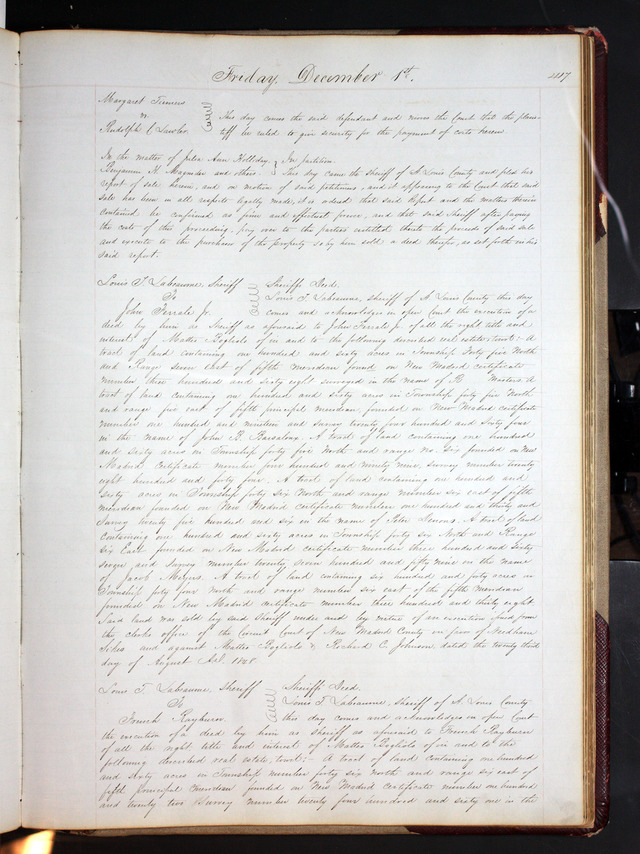 Friday, December 1st.
Margaret
vs
Rudolph Lawler
This day comes the said defendant and moves the Court that the plain-
tiff be ruled to give security for the payment of costs herein
In the matter of Julia Ann Holliday, In partition.
Benjamin H. Magruder and others. This day came the sheriff of St. Louis County and files his
report of sale herein, and on motion of said petitioners, and it appearing to the Court that said
sale has been in all respects legally made, it is ordered that said Report and the matters therein
contained be confirmed as firm and effectual forever, and that said Sheriff after paying
the costs of this proceeding, pay over to the parties entitled thereto the proceeds of said sale
and execute to the purchasers of the property so by him sold a deed therefor, as set forth in his
said report.
Louis T. Labeaume, Sheriff
To
John Jr.
Sheriffs Deed.
Louis T. Labeaume, sheriff of St. Louis County this day
comes and acknowledges in open Court the execution of a
deed by him as Sheriff as aforesaid to John Jr. of all the right title and
interest of Matteo Bogliolo of in and to the following described real estate, to wit: A
tract of land containing one hundred and sixty acres in Township forty five North
and Range seven east of fifth meridian found on New Madrid certificate
number three hundred and sixty eight surveyed in the name of B Masters. A
tract of land containing one hundred and sixty acres in Township forty five North
and range five east of fifth principal meridian, founded on New Madrid certificate
number one hundred and nineteen and survey twenty four hundred and sixty four
in the name of John B. Barsaloux. A tract of land containing one hundred
and sixty acres in Township forty five north and range no. six founded on New
Madrid Certificate number four hundred and ninety nine, survey number twenty
eight hundred and forty four. A tract of land containing one hundred and
sixty acres in Township forty six North and range number six east of fifth
meridian founded on New Madrid certificate number one hundred and thirty and
Survey twenty five hundred and six in the name of Peter A tract of land
containing one hundred and sixty acres in Township forty six North and Range
six East founded on New Madrid certificate number three hundred and sixty
seven and survey number twenty seven hundred and fifty nine in the name
of Jacob Meyers. A tract of land containing six hundred and forty acres in
Township forty four North and range number six east of the fifth meridian
founded on New Madrid certificate number three hundred and thirty eight
Said land was sold by said Sheriff under and by virtue of an execution issued from
the clerks office of the Circuit Court of New Madrid County in favor of Needham
Sikes and against Matteo Bogliolo & Richard C. Johnson dated the twenty third
day of August A.D. 1848
Louis T. Labeaume, Sheriff
To
French Rayburn.
Sheriffs Deed.
Louis T. Labeaume, Sheriff of St. Louis County
this day comes and acknowledges in open Court
the execution of a deed by him as Sheriff as aforesaid to French Rayburn
of all the right title and interest of Matteo Bogliolo of in and to the
following described real estate, to wit:- A tract of land containing one hundred
and sixty acres in Township number forty six north and range six east of
fifth principal meridian founded on New Madrid Certificate number one hundred
and twenty two survey number twenty four hundred and sixty one in the